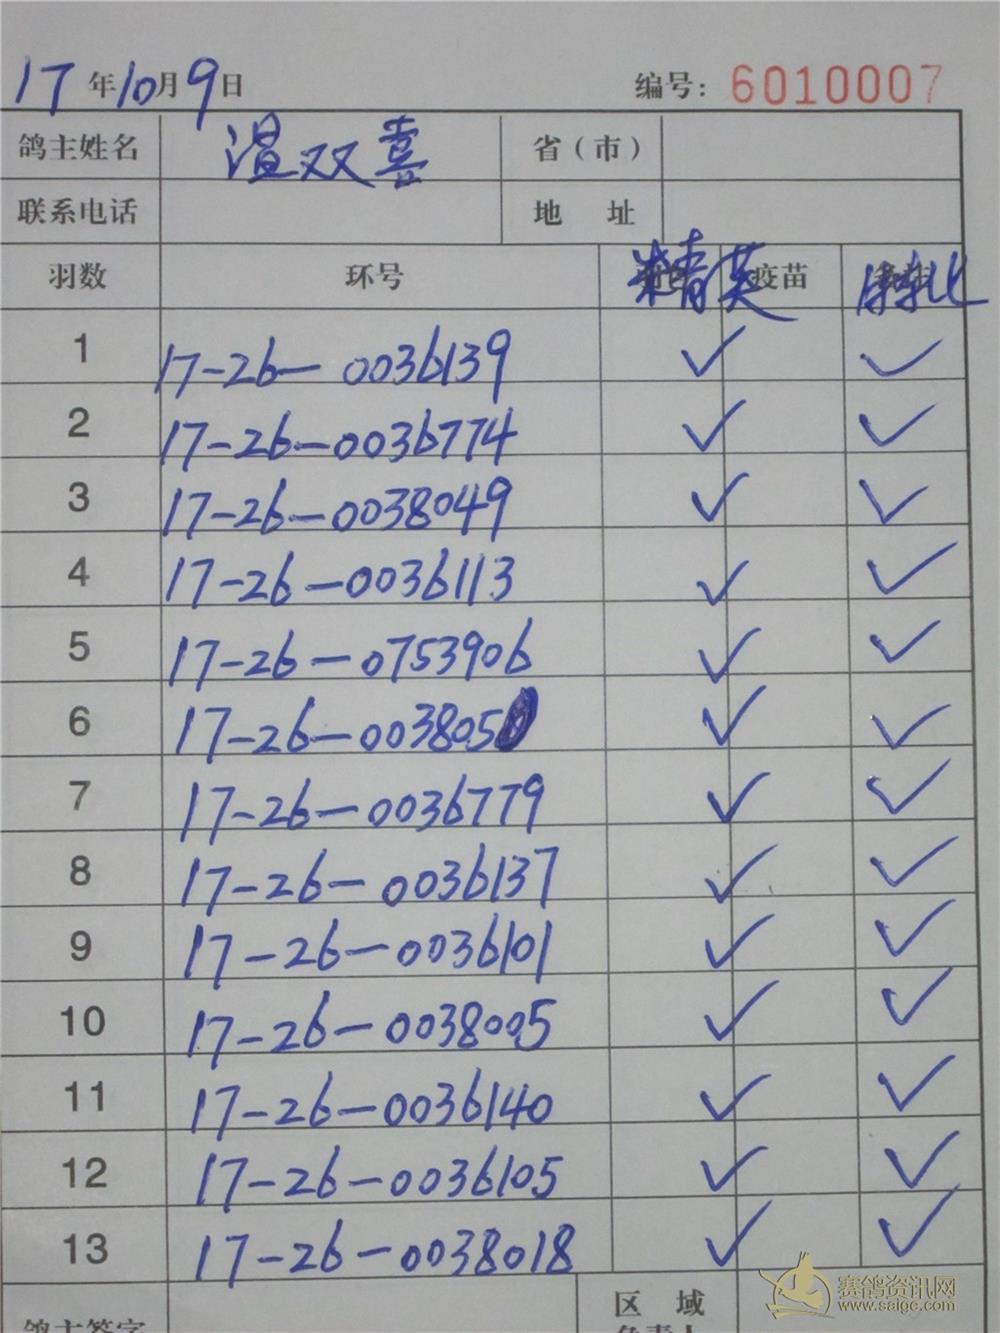 17年10月9日 编号: 6010007
鸽主姓名 温双喜 省(市)
联系电话 地 址
羽数 环号 精英 疫苗
1 17-26-0036139 ✓ ✓
2 17-26-0036774 ✓ ✓
3 17-26-0038049 ✓ ✓
4 17-26-0036113 ✓ ✓
5 17-26-0753906 ✓ ✓
6 17-26-0038050 ✓ ✓
7 17-26-0036779 ✓ ✓
8 17-26-0036137 ✓ ✓
9 17-26-0036101 ✓ ✓
10 17-26-0038005 ✓ ✓
11 17-26-0036140 ✓ ✓
12 17-26-0036105 ✓ ✓
13 17-26-0038018 ✓ ✓
鸽主签字 区 域
负责人
赛鸽资讯网
www.saigc.com